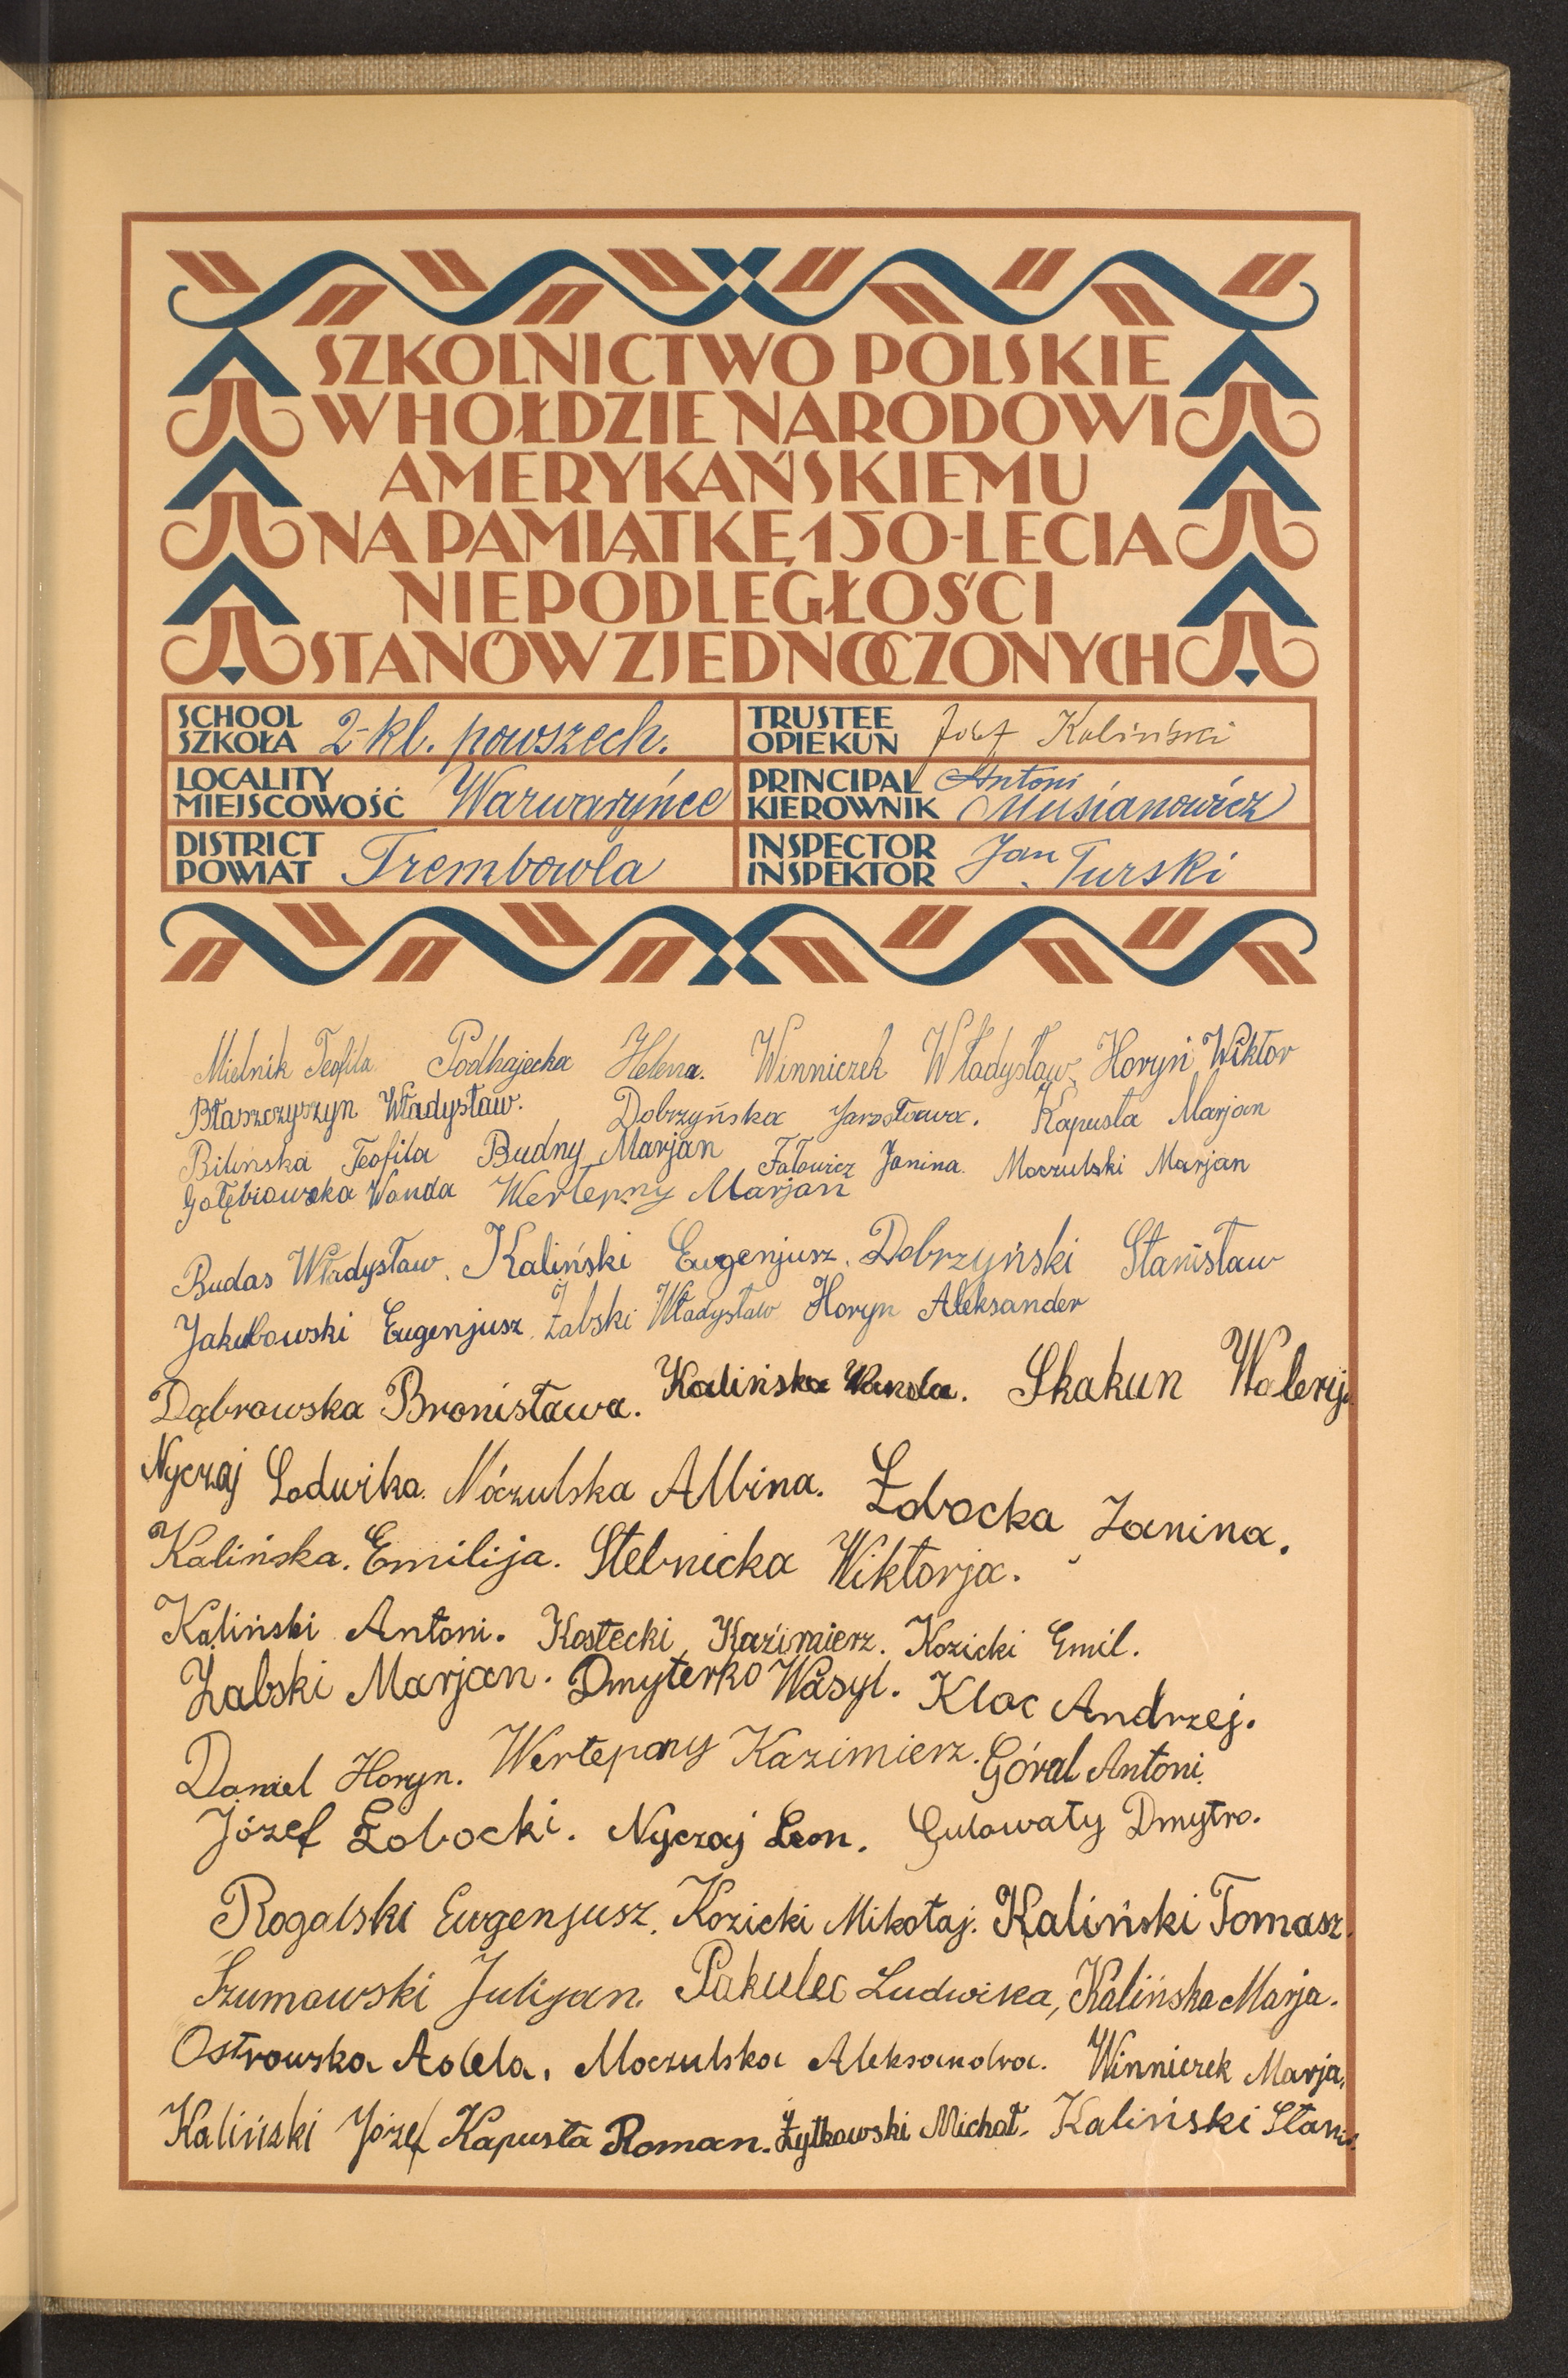 SZKOLNICTWO POLSKIE
W HOŁDZIE NARODOWI
AMERYKAŃSKIEMU
NA PAMIĄTKĘ 150-LECIA
NIEPODLEGŁOŚCI
STANÓW ZJEDNOCZONYCH
SCHOOL
SZKOŁA 2-kl. powszech.
TRUSTEE
OPIEKUN Józef Kaliński
LOCALITY
MIEJSCOWOŚĆ Warwaryńce
PRINCIPAL Antoni
KIEROWNIK Musianowicz
DISTRICT
POWIAT Trembowla
INSPECTOR
INSPEKTOR Jan Turski
Mielnik Teofila Podhajecka Helena. Winniczek Władysław, Horyń Wiktor
Błaszczyszyn Władysław. Dobrzyńska Jarosława. Kapusta Marjan
Bilińska Teofila Budny Marjan Fałowicz Janina. Moczulski Marjan
Gołębiowska Wanda Wertepny Marjan
Budas Władysław. Kaliński Eugenjusz. Dobrzyński Stanisław
Jakubowski Eugenjusz Żabski Władysław Horyn Aleksander
Dąbrowska Bronisława. Kalińska Wanda. Skakun Walerja
Nyczaj Lodwika. Móczulska Albina. Łobocka Janina.
Kalińska. Emilija. Stebnicka Wiktorja.
Kaliński Antoni. Kostecki Kazimierz. Kozicki Emil.
Żabski Marjan. Dmyterko Wasyl. Kloc Andrzej.
Daniel Horyn. Wertepny Kazimierz. Góral Antoni.
Józef Łobocki. Nyczaj Leon. Gulowaty Dmytro.
Rogalski Eugenjusz. Kozicki Mikołaj. Kaliński Tomasz.
Szumowski Julijan. Pakulec Ludwika, Kalińska Marja.
Ostrowska Adela. Moczulska Aleksandra. Winniczek Marja,
Kaliński Józef Kapusta Roman. Żytkowski Michał. Kaliński Stanis.